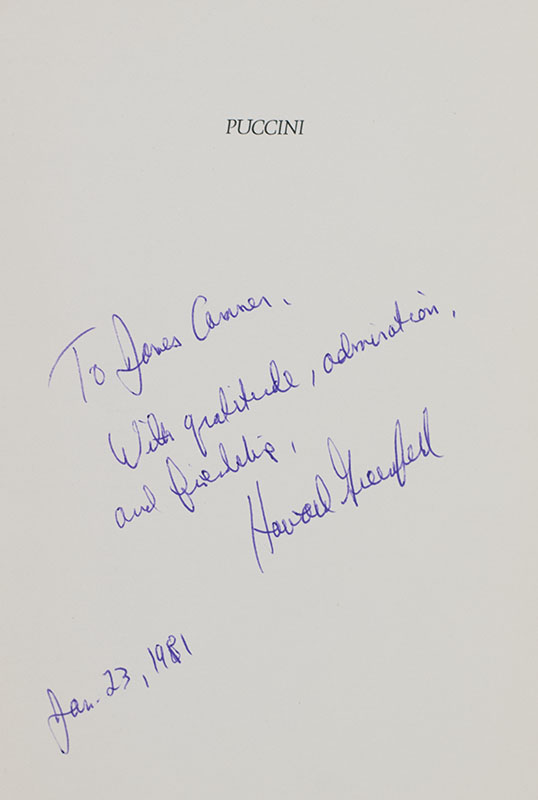 PUCCINI
To James Camner,
With gratitude, admiration,
and friendship,
Howard Greenfeld
Jan. 23, 1981